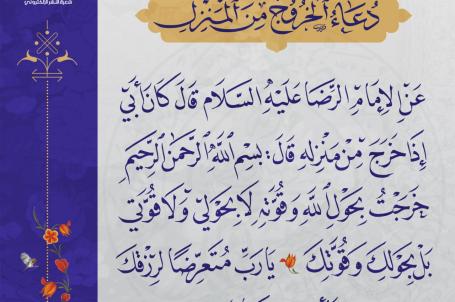 شعبة النشر الإلكتروني
دُعَاءُ الخُرُوجِ مِنَ المَنْزِلِ
عَنِ الإِمَامِ الرِّضَا عَلَيْهِ السَّلَام قَالَ كَانَ أَبِي
إِذَا خَرَجَ مِنْ مَنْزِلِهِ قَالَ: بِسْمِ اللهِ الرَّحْمَٰنِ الرَّحِيمِ
خَرَجْتُ بِحَوْلِ اللهِ وَقُوَّتِهِ لَا بِحَوْلِي وَلَا قُوَّتِي
بَلْ بِحَوْلِكَ وَقُوَّتِكَ يَا رَبِّ مُتَعَرِّضًا لِرِزْقِكَ